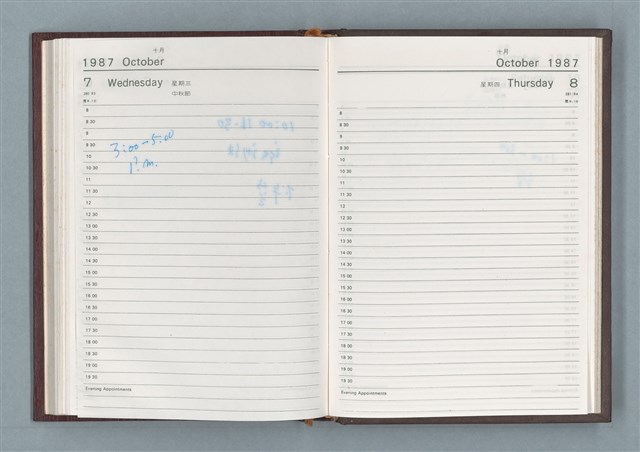 十月
1987 October
7 Wednesday 星期三
中秋節
8
8 30
9
9 30
10
10 30
11
11 30
12
12 30
13 00
13 30
14 00
14 30
15 00
15 30
16 00
16 30
17 00
17 30
18 00
18 30
19 00
19 30
Evening Appointments
3:00-5:00
P.m.
十月
October 1987
星期四 Thursday 8
8
8 30
9
9 30
10
10 30
11
11 30
12
12 30
13 00
13 30
14 00
14 30
15 00
15 30
16 00
16 30
17 00
17 30
18 00
18 30
19 00
19 30
Evening Appointments